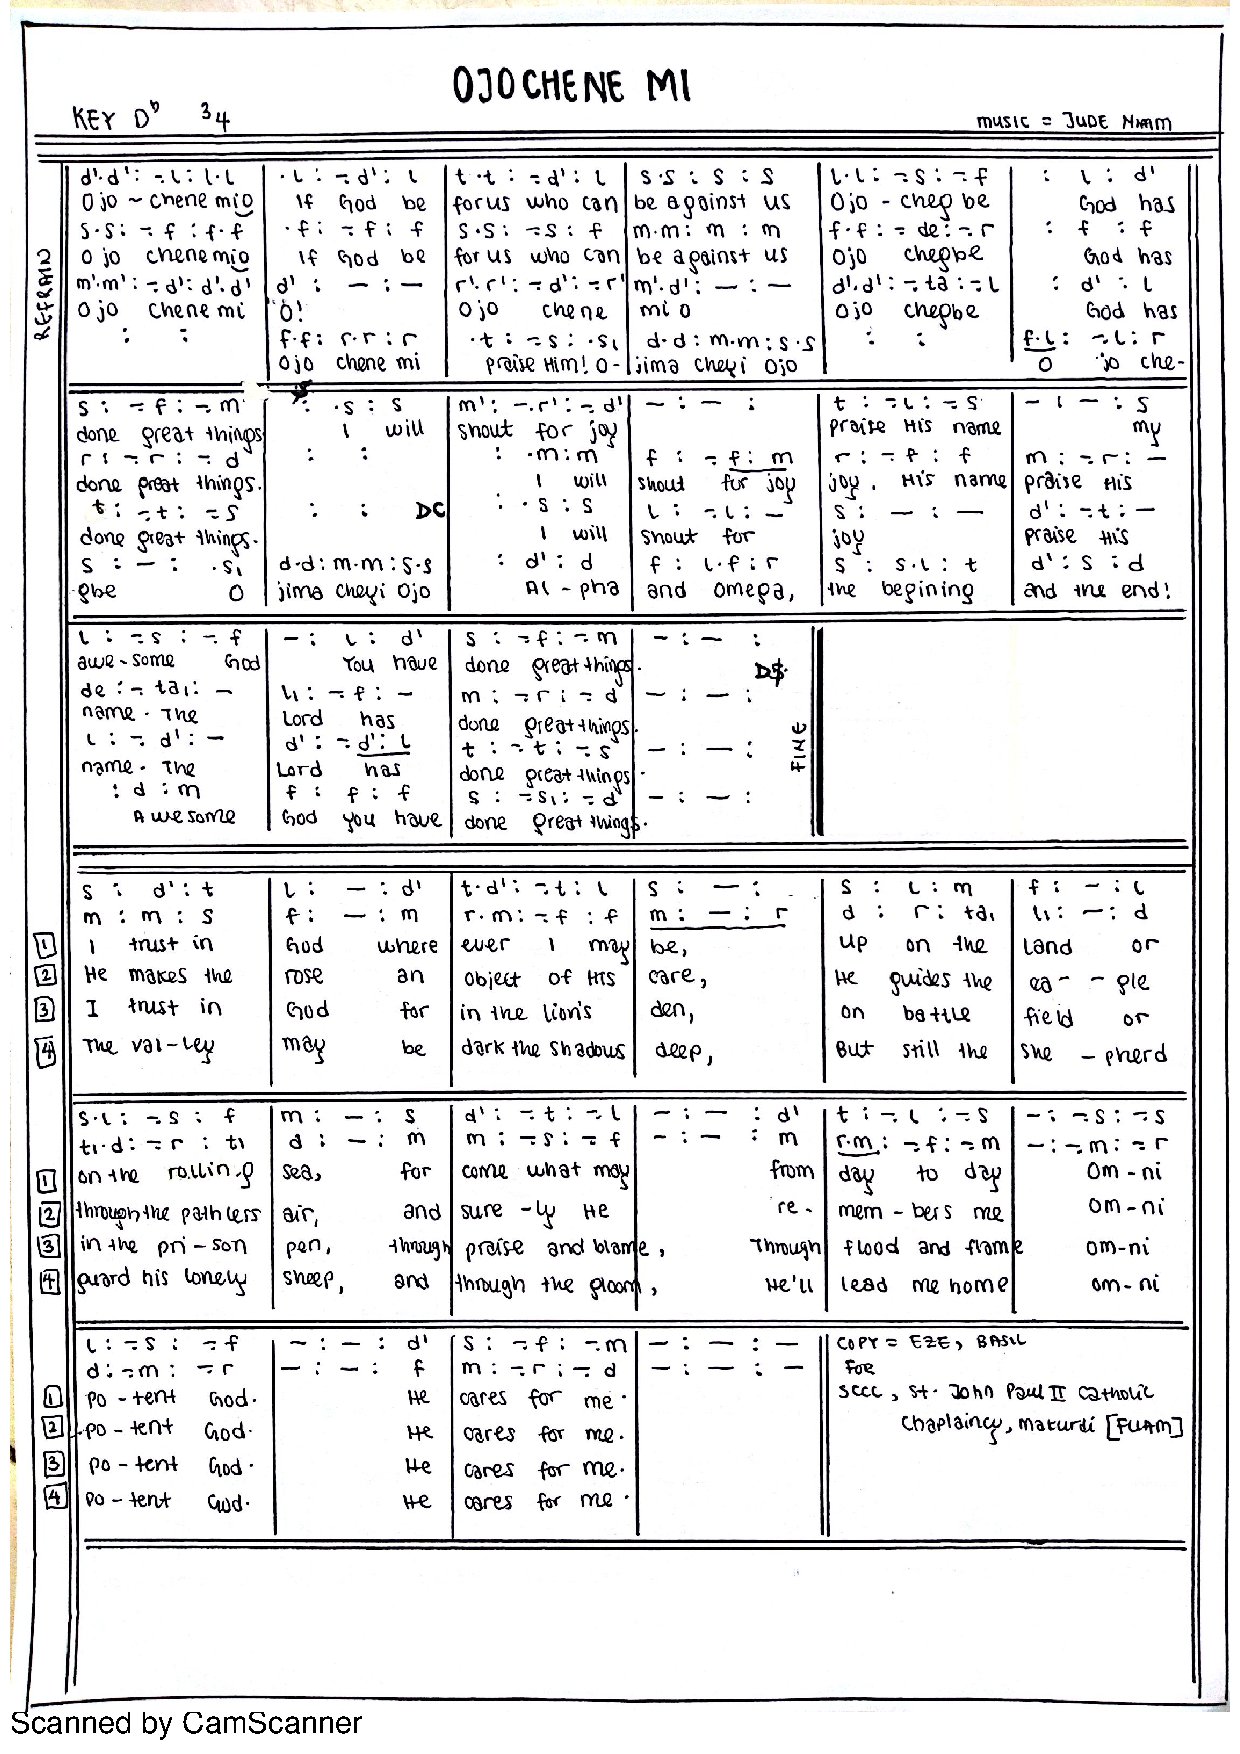 OJOCHENE MI
KEY Db 34 MUSIC = JUDE NNAM
REFRAIN
d'.d': -.l: l.l | .l: -.d': l | t.t: -.d': l | s.s: s : s | l.l: -.s: -.f | : l : d'
Ojo ~ chene mio | If God be | for us who can | be against us | Ojo - chegbe | God has
s.s: -.f : f.f | .f: -.f: f | s.s: -.s: f | m.m: m : m | f.f: -.de: -.r | : f : f
O jo chenemio | If God be | for us who can | be against us | Ojo chegbe | God has
m'.m': -.d': d'.d' | d' : - : - | r'.r': -.d': -.r' | m'.d': - : - | d'.d': -.ta: -.l | : d' : l
Ojo chene mi | O! | Ojo chene | mi o | Ojo chegbe | God has
: : | f.f: r.r: r | .t: -.s: .s, | d.d: m.m: s.s | : : | f.l: -.l: r
Ojo chene mi | praise Him! O- | jima cheyi Ojo | O jo che-
s : -.f : -.m | : .s : s | m': -.r': -.d' | - : - : | t : -.l: -.s | - : - : s
done great things | I will | shout for joy | praise His name | my
r : -.r : -.d | : : | : .m: m | f : -.f: m | r : -.f : f | m : -.r: -
done great things. | I will | shout for joy | joy, His name | praise His
t : -.t: -.s | : : DC | : .s : s | l : -.l: - | s : - : - | d' : -.t: -
done great things. | I will | shout for | joy | praise His
s : - : .s, | d.d: m.m: s.s | : d' : d | f : l.f: r | s : s.l: t | d' : s : d
gbe O | jima cheyi Ojo | Al - pha | and omega, | the begining | and the end!
l : -.s : -.f | - : l : d' | s : -.f: -.m | - : - :
awe-some God | You have | done great things. | D$.
de : -.ta,: - | l, : -.f : - | m : -.r : -.d | - : - :
name. The | Lord has | done great things.
l : -.d': - | d' : -.d': l | t : -.t : -.s | - : - :
name. The | Lord has | done great things.
: d : m | f : f : f | s : -.s,: -.d | - : - :
Awesome | God you have | done great things.
FINE
s : d' : t | l : - : d' | t.d': -.t: l | s : - : | s : l : m | f : - : l
m : m : s | f : - : m | r.m: -.f : f | m : - : r | d : r : ta, | l, : - : d
1 I trust in | God where | ever I may | be, | up on the | land or
2 He makes the | rose an | object of His | care, | He guides the | ea - - gle
3 I trust in | God for | in the lion's | den, | on battle | field or
4 The val-ley | may be | dark the shadows | deep, | But still the | she - pherd
s.l: -.s : f | m : - : s | d' : -.t : -.l | - : - : d' | t : -.l : -.s | - : -.s : -.s
t,.d: -.r : t, | d : - : m | m : -.s: -.f | - : - : m | r.m: -.f: -.m | - : -.m: -.r
1 on the rolling | sea, for | come what may | from | day to day | Om-ni
2 through the pathless | air, and | sure -ly He | re- | mem-bers me | om-ni
3 in the pri-son | pen, through | praise and blame, | Through | flood and flame | om-ni
4 guard his lonely | sheep, and | through the gloom, | He'll | lead me home | om-ni
l : -.s : -.f | - : - : d' | s : -.f : -.m | - : - : - | COPY = EZE, BASIL
d : -.m : -.r | - : - : f | m : -.r : -.d | - : - : - | FOR
1 po-tent God. | He | cares for me. | SCCC, St. John Paul II Catholic
2 po-tent God. | He | cares for me. | Chaplaincy, Makurdi [FUAM]
3 po-tent God. | He | cares for me.
4 po-tent God. | He | cares for me.
Scanned by CamScanner